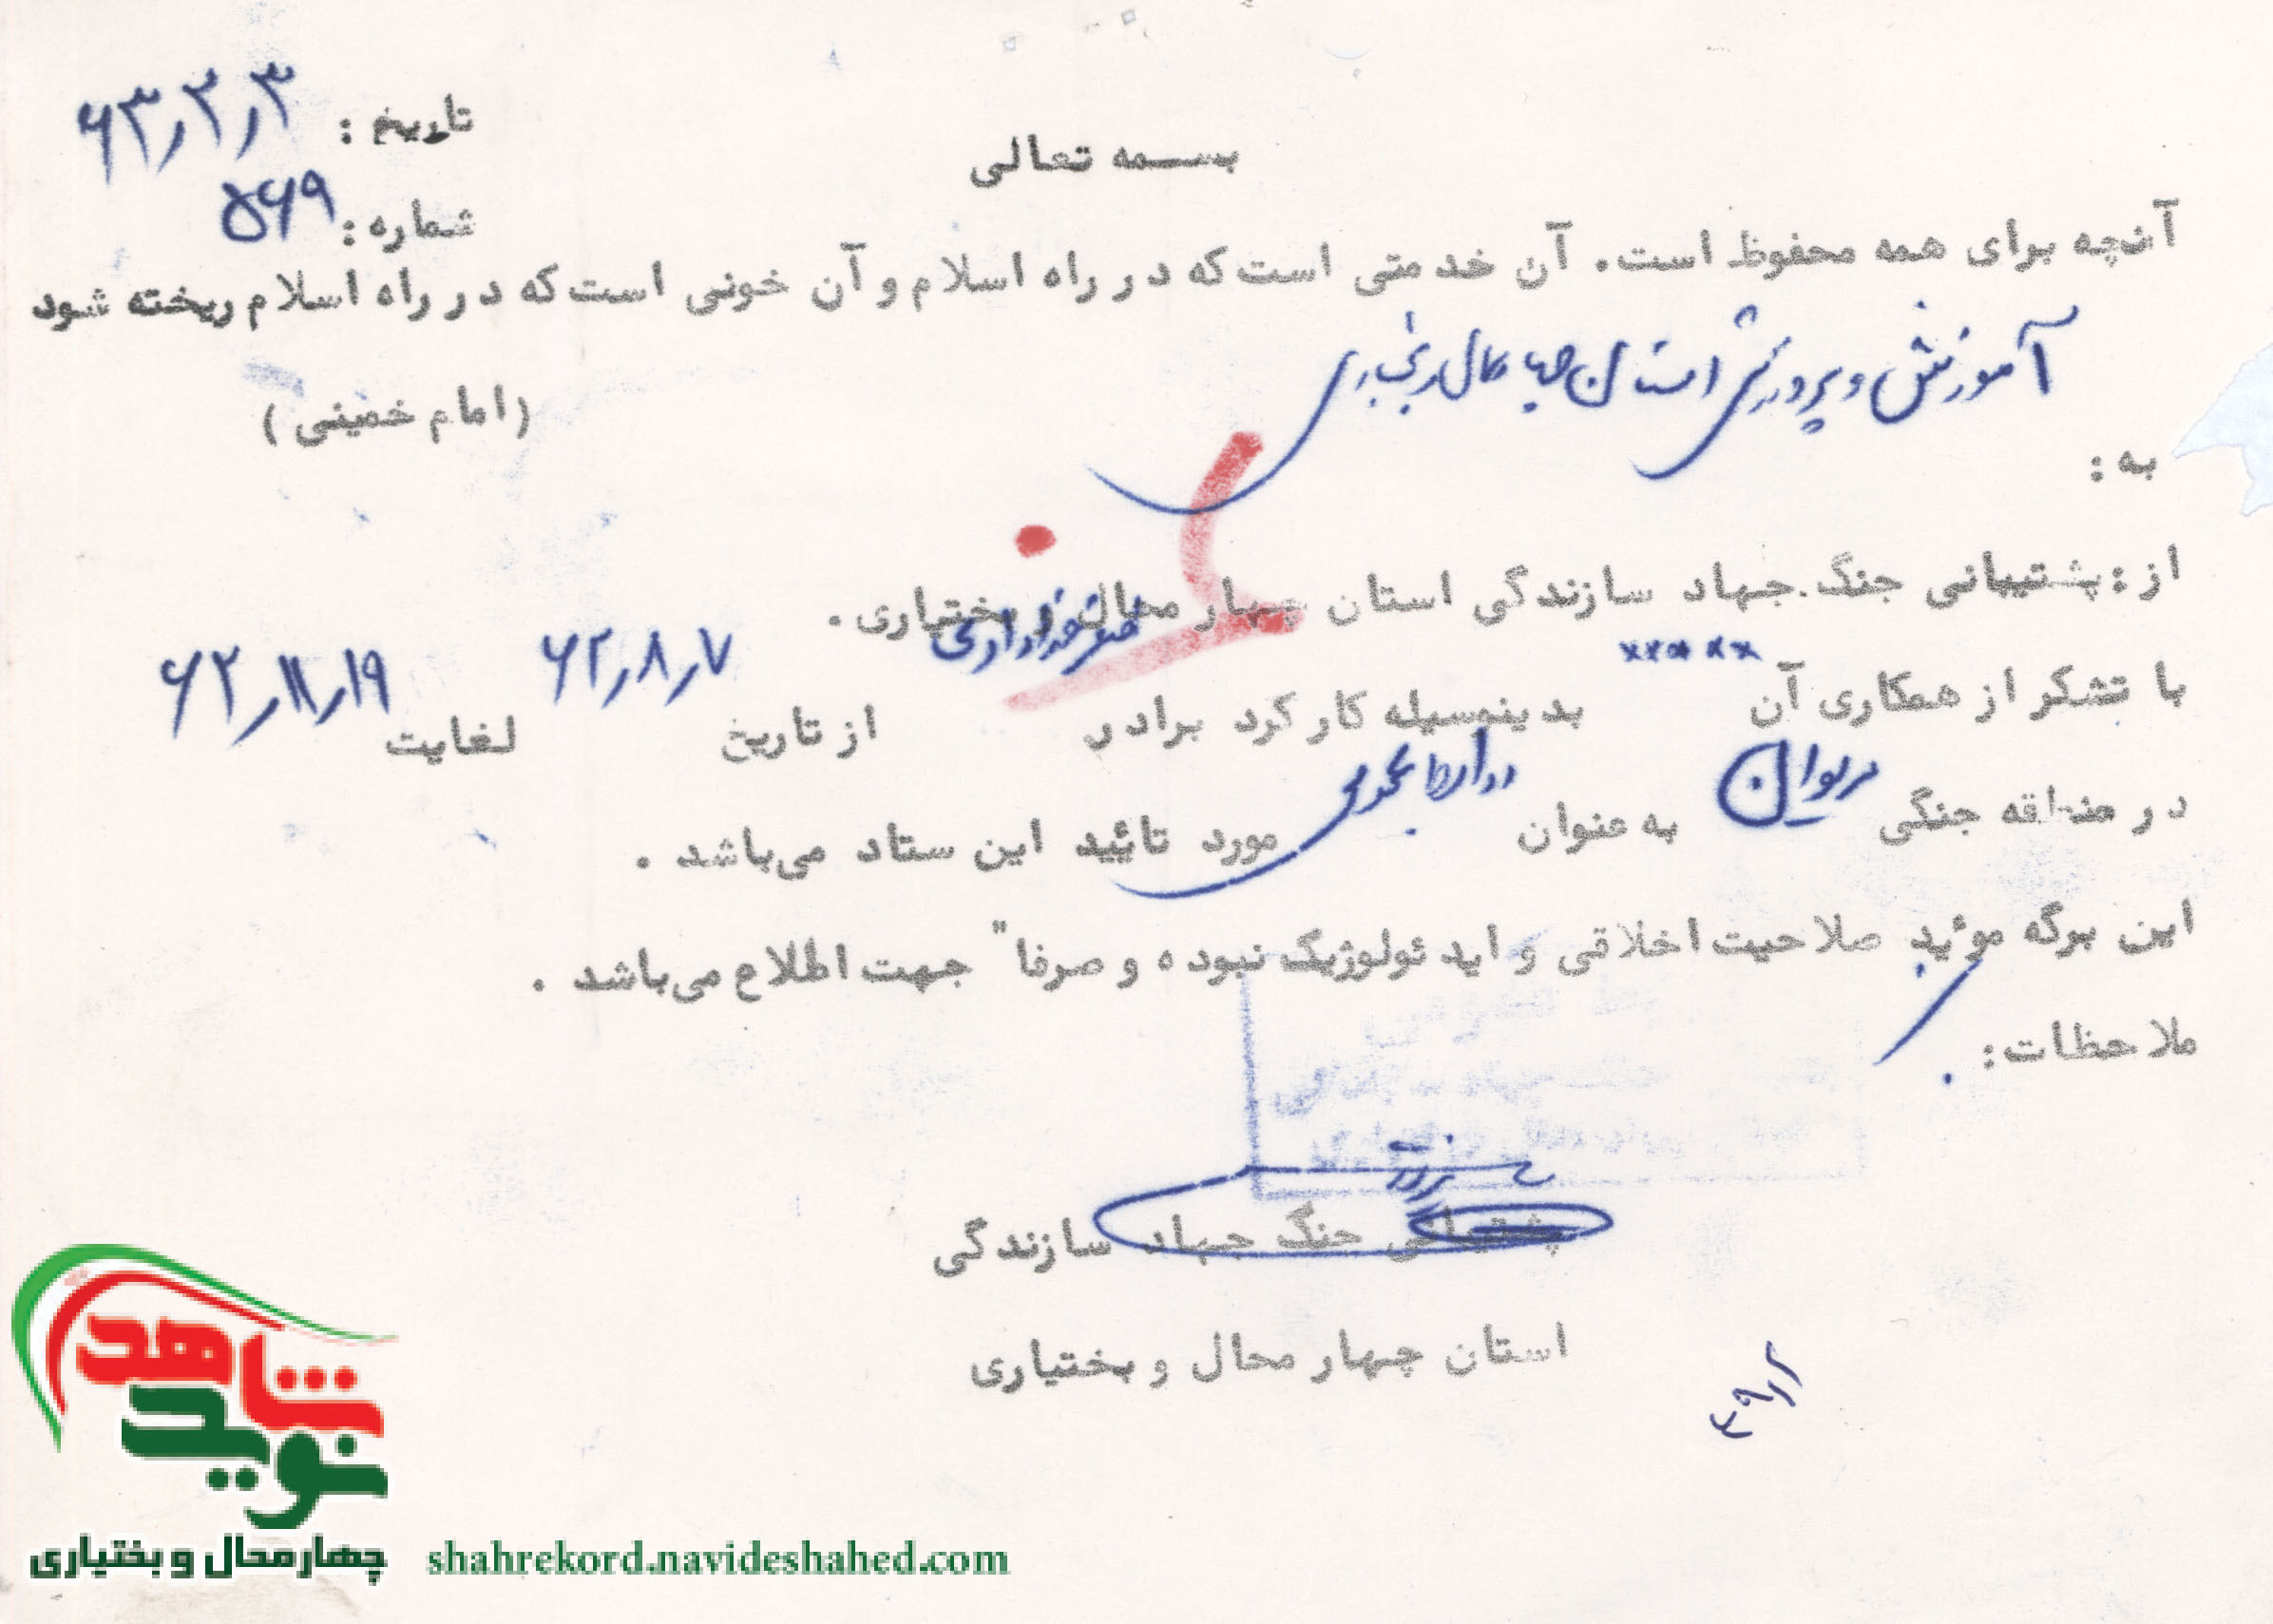 بسمه تعالی
تاریخ : ۶۳٫۳٫۳
شماره : ۵۶۹
آنچه برای همه محفوظ است. آن خدمتی است که در راه اسلام و آن خونی است که در راه اسلام ریخته شود
(امام خمینی)
آموزش و پرورش استان چهارمحال بختیاری
به :
از : پشتیبانی جنگ جهاد سازندگی استان چهار محال و بختیاری .
با تشکر از همکاری آن ××××× بدینوسیله کار کرد برادر از تاریخ ۶۲٫۸٫۷ لغایت ۶۲٫۱۱٫۱۹
در منطقه جنگی مریوان به عنوان مورد تائید این ستاد می‌باشد .
این برگه موئید صلاحیت اخلاقی و اید ئولوژیک نبوده و صرفا" جهت اطلاع می‌باشد .
ملاحظات :
پشتیبانی جنگ جهاد سازندگی
استان چهار محال و بختیاری
شاهد
نوید
چهارمحال و بختیاری
shahrekord.navideshahed.com